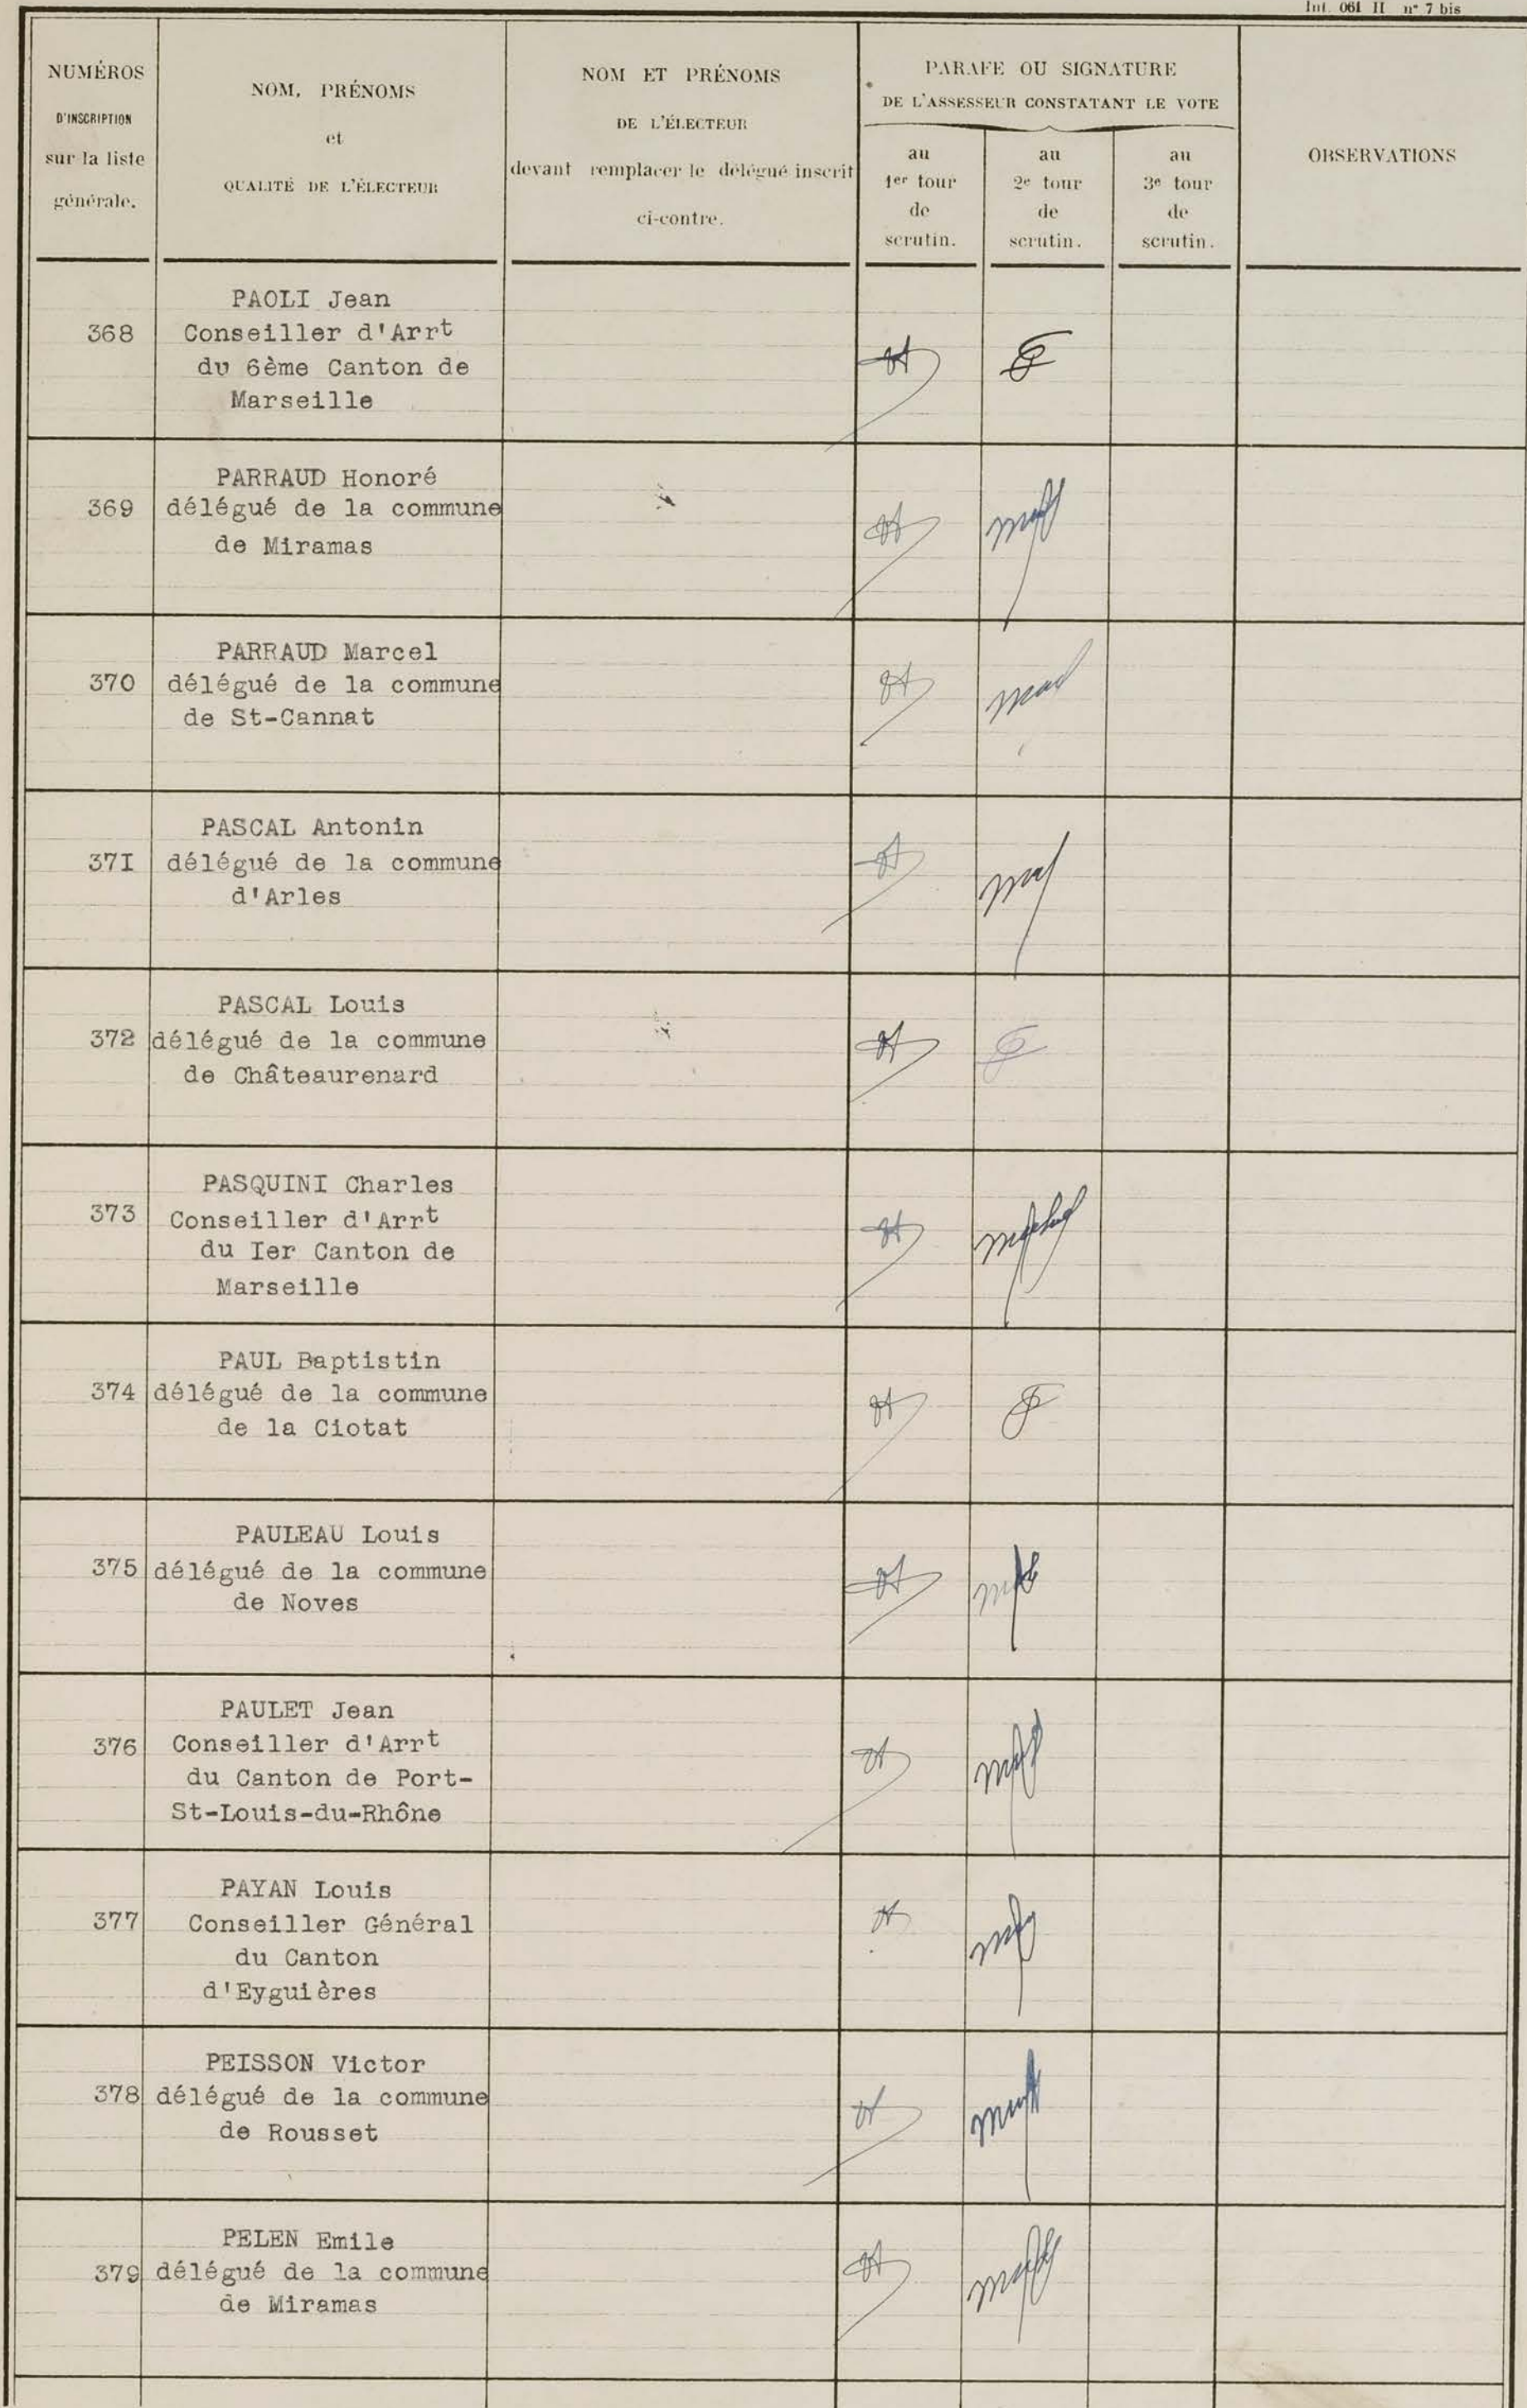 Int. 061 II n° 7 bis
NUMÉROS
D'INSCRIPTION
sur la liste
générale.
NOM, PRÉNOMS
et
QUALITÉ DE L'ÉLECTEUR
NOM ET PRÉNOMS
DE L'ÉLECTEUR
devant remplacer le délégué inscrit
ci-contre.
PARAFE OU SIGNATURE
DE L'ASSESSEUR CONSTATANT LE VOTE
au
1er tour
de
scrutin.
au
2e tour
de
scrutin.
au
3e tour
de
scrutin.
OBSERVATIONS
PAOLI Jean
368 Conseiller d'Arrt
du 6ème Canton de
Marseille
PARRAUD Honoré
369 délégué de la commune
de Miramas
PARRAUD Marcel
370 délégué de la commune
de St-Cannat
PASCAL Antonin
37I délégué de la commune
d'Arles
PASCAL Louis
372 délégué de la commune
de Châteaurenard
PASQUINI Charles
373 Conseiller d'Arrt
du Ier Canton de
Marseille
PAUL Baptistin
374 délégué de la commune
de la Ciotat
PAULEAU Louis
375 délégué de la commune
de Noves
PAULET Jean
376 Conseiller d'Arrt
du Canton de Port-
St-Louis-du-Rhône
PAYAN Louis
377 Conseiller Général
du Canton
d'Eyguières
PEISSON Victor
378 délégué de la commune
de Rousset
PELEN Emile
379 délégué de la commune
de Miramas